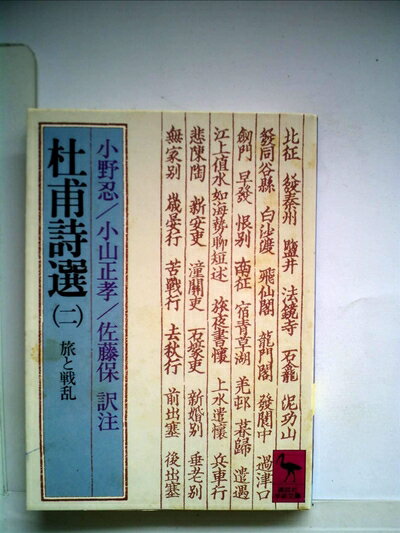 北征 發秦州 鹽井 法鏡寺 石龕 泥功山
發同谷縣 白沙渡 飛仙閣 龍門閣 發閬中 過津口
劔門 早發 恨別 南征 宿青草湖 羌邨 暮歸 遣遇
江上値水如海勢聊短述 旅夜書懷 上水遣懷 兵車行
悲陳陶 新安吏 潼關吏 石壕吏 新婚別 垂老別
無家別 歳晏行 苦戰行 去秋行 前出塞 後出塞
小野忍/小山正孝/佐藤保 訳注
杜甫詩選(二) 旅と戦乱
講談社
学術文庫